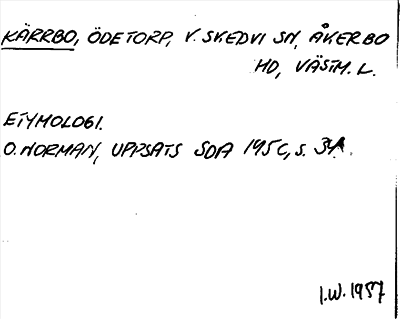 KÄRRBO, ÖDETORP, V. SKEDVI SN, ÅKERBO
HD, VÄSTM. L.
ETYMOLOGI.
O. NORMAN, UPPSATS SOA 1950, S. 34.
I.W. 1957